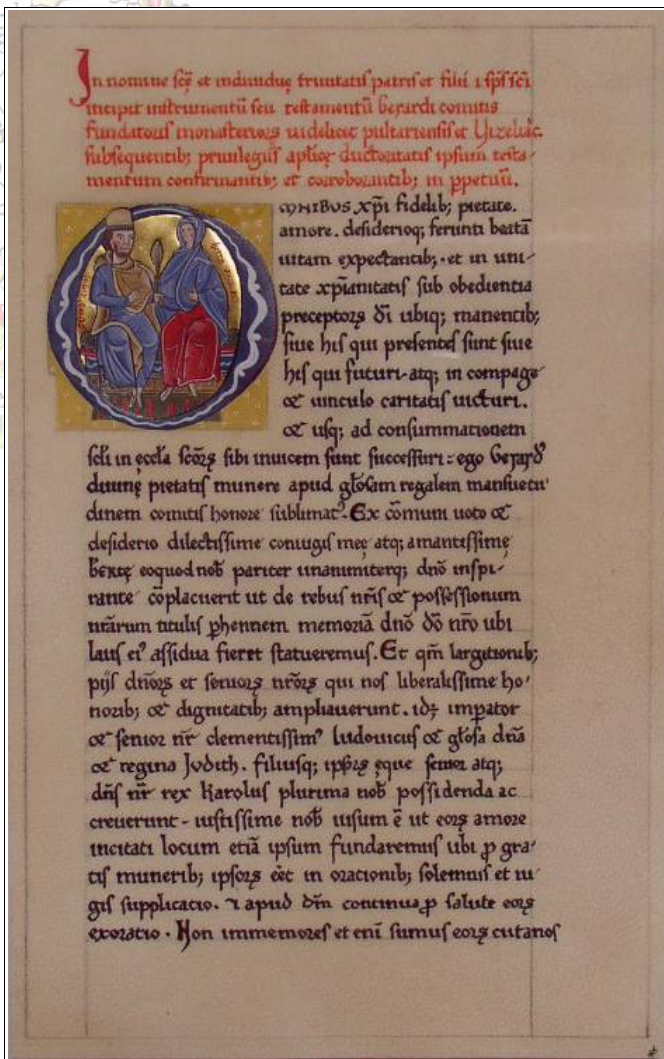 In nomine sc̄ę et indiuiduę trinitatis patris et filii ⁊ sp̄s sc̄i
incipit instrumentū seu testamentū Gerardi comitis
fundatoris monasteriorꝝ uidelicet pultariensis et Vizeliac̄.
subsequentib; priuilegiis ap̄licę auctoritatis ipsum testa-
mentum confirmantib; et corroborantib; in ꝑpetuū.
OMNIBUS xp̄i fidelib; pietate.
amore. desiderioq; feruenti beatā
uitam expectantib; et in uni-
tate xp̄ianitatis sub obedientia
preceptorꝝ dī ubiq; manentib;
siue his qui presentes sunt siue
his qui futuri atq; in compage
& uinculo caritatis uicturi.
& usq; ad consummationem
scl̄i in ęccl̄a sc̄orꝝ sibi inuicem sunt successuri: ego Gerardꝰ
diuinę pietatis munere apud gl̄osam regalem mansuetu-
dinem comitis honore sublimatꝰ. Ex cōmuni uoto &
desiderio dilectissime coniugis meę atq; amantissimę
Bertę eo quod nob̄ pariter unanimiterq; dn̄o inspi-
rante cōplacuerit ut de rebus nr̄is & possessionum
nr̄arum titulis ꝑhennem memoriā dn̄o dō nr̄o ubi
laus eiꝰ assidua fieret statueremus. Et qm̄ largitionib;
pijs dn̄orꝝ et seniorꝝ nr̄orꝝ qui nos liberalissime ho-
norib; & dignitatib; ampliauerunt. idꝫ imꝑator
& senior nr̄ clementissimꝰ ludouicus & gl̄osa dn̄a
& regina Judith. filiusq; ipsorꝝ ęque senior atq;
dn̄s nr̄ rex karolus plurima nob̄ possidenda ac
creuerunt. iustissime nob̄ uisum ē ut eorꝝ amore
incitati locum etiā ipsum fundaremus ubi ꝓ gra-
tis munerib; ipsorꝝ eēt in orationib; solemnis et iu-
gis supplicatio. ⁊ apud dm̄ continua ꝓ salute eorꝝ
exoratio. Non immemores et eni sumus eorꝝ